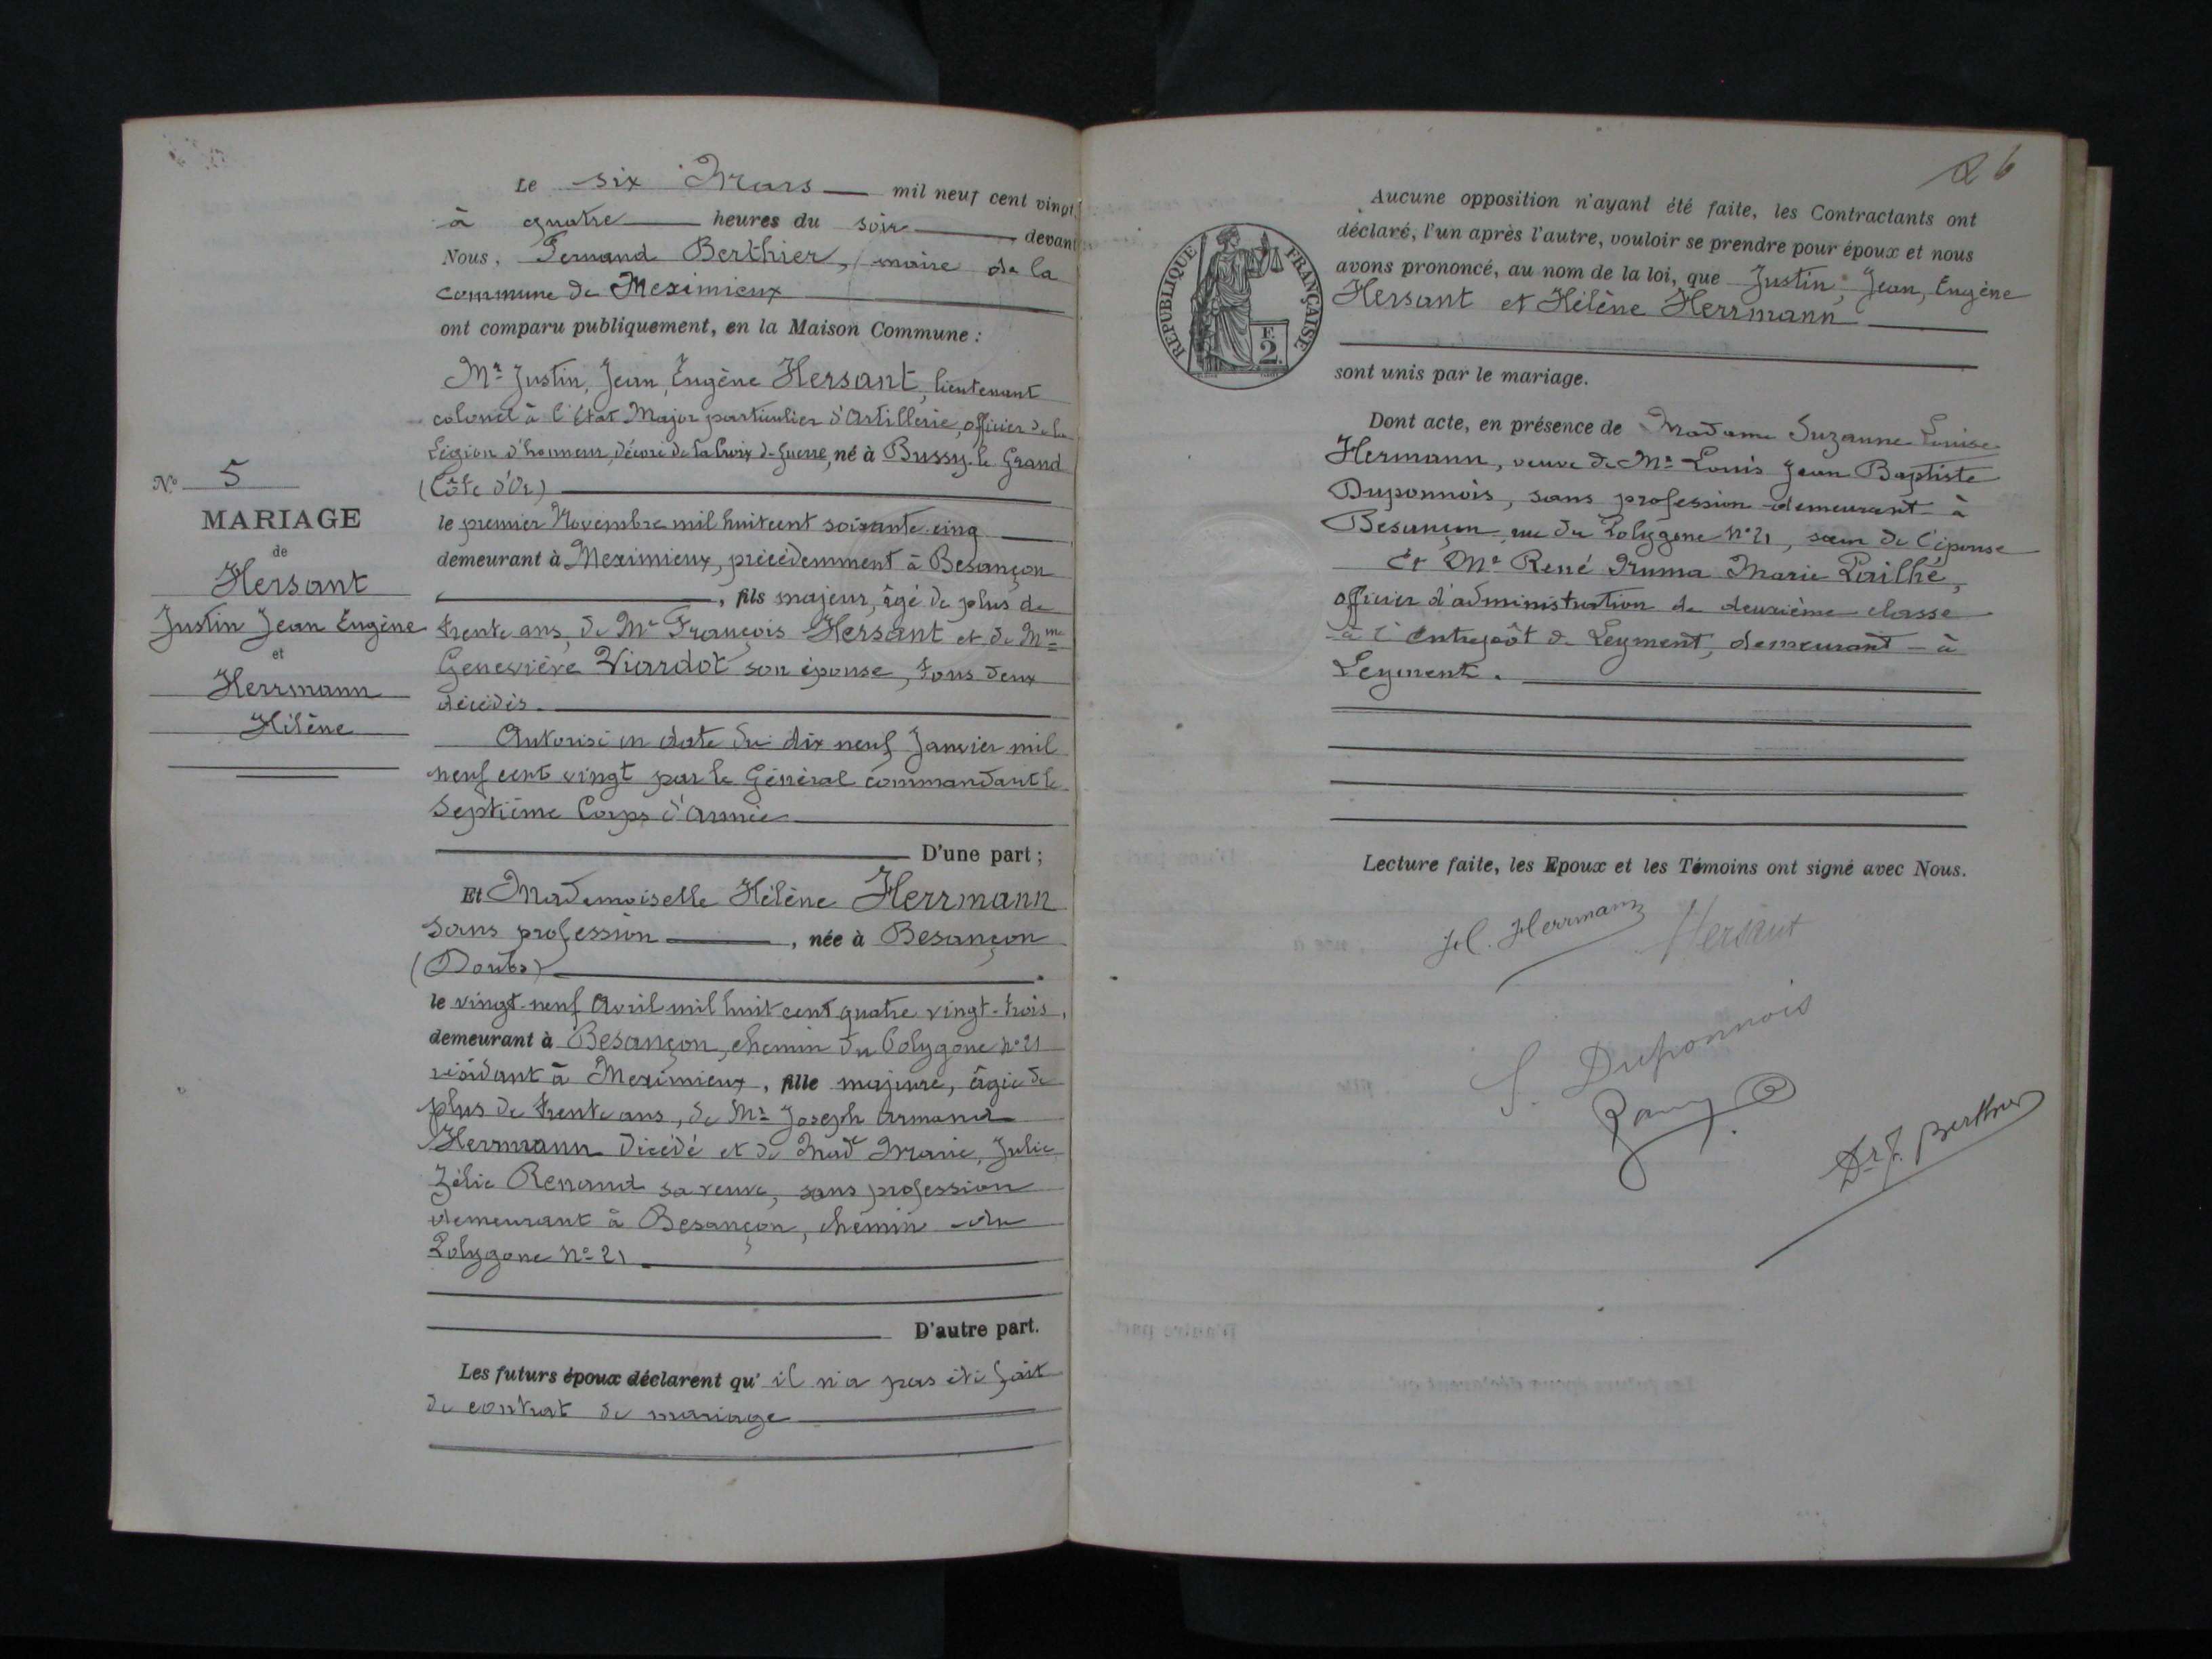 Le six Mars mil neuf cent vingt
à quatre heures du soir devant
Nous, Fernand Berthier, maire de la
commune de Meximieux
ont comparu publiquement, en la Maison Commune :
Mr Justin, Jean, Eugène Hersant, lieutenant
colonel à l'État Major particulier d'Artillerie, officier de la
Légion d'honneur, décoré de la Croix de Guerre, né à Bussy-le Grand
(Côte d'Or)
le premier Novembre mil huit cent soixante-cinq
demeurant à Meximieux, précédemment à Besançon
, fils majeur, âgé de plus de
trente ans, de Mr François Hersant et de Mme
Geneviève Viardot son épouse, tous deux
décédés.
Autorisé en date du dix neuf Janvier mil
neuf cent vingt par le Général commandant le
Septième Corps d'Armée
D'une part ;
Et Mademoiselle Hélène Herrmann
sans profession, née à Besançon
(Doubs)
le vingt-neuf Avril mil huit cent quatre vingt-trois,
demeurant à Besançon, chemin du Polygone n° 21
résidant à Meximieux, fille majeure, âgée de
plus de trente ans, de Mr Joseph Armand
Herrmann décédé et de Made Marie, Julie,
Zélie Renaud sa veuve, sans profession
demeurant à Besançon, chemin du
Polygone N° 21
D'autre part.
Les futurs époux déclarent qu' il n'a pas été fait
de contrat de mariage
N° 5
MARIAGE
de
Hersant
Justin Jean Eugène
et
Herrmann
Hélène
26
RÉPUBLIQUE FRANÇAISE
F.
2
Aucune opposition n'ayant été faite, les Contractants ont
déclaré, l'un après l'autre, vouloir se prendre pour époux et nous
avons prononcé, au nom de la loi, que Justin, Jean, Eugène
Hersant et Hélène Herrmann
sont unis par le mariage.
Dont acte, en présence de Madame Suzanne Louise
Hermann, veuve de Mr Louis Jean Baptiste
Duponnois, sans profession demeurant à
Besançon rue du Polygone N° 21, sœur de l'épouse
Et Mr René Numa Marie Pailhé,
officier d'administration de deuxième classe
à l'Entrepôt de Leyment, demeurant à
Leyment.
Lecture faite, les Epoux et les Témoins ont signé avec Nous.
H. Herrmann
Hersant
S. Duponnois
Dr F. Berthier